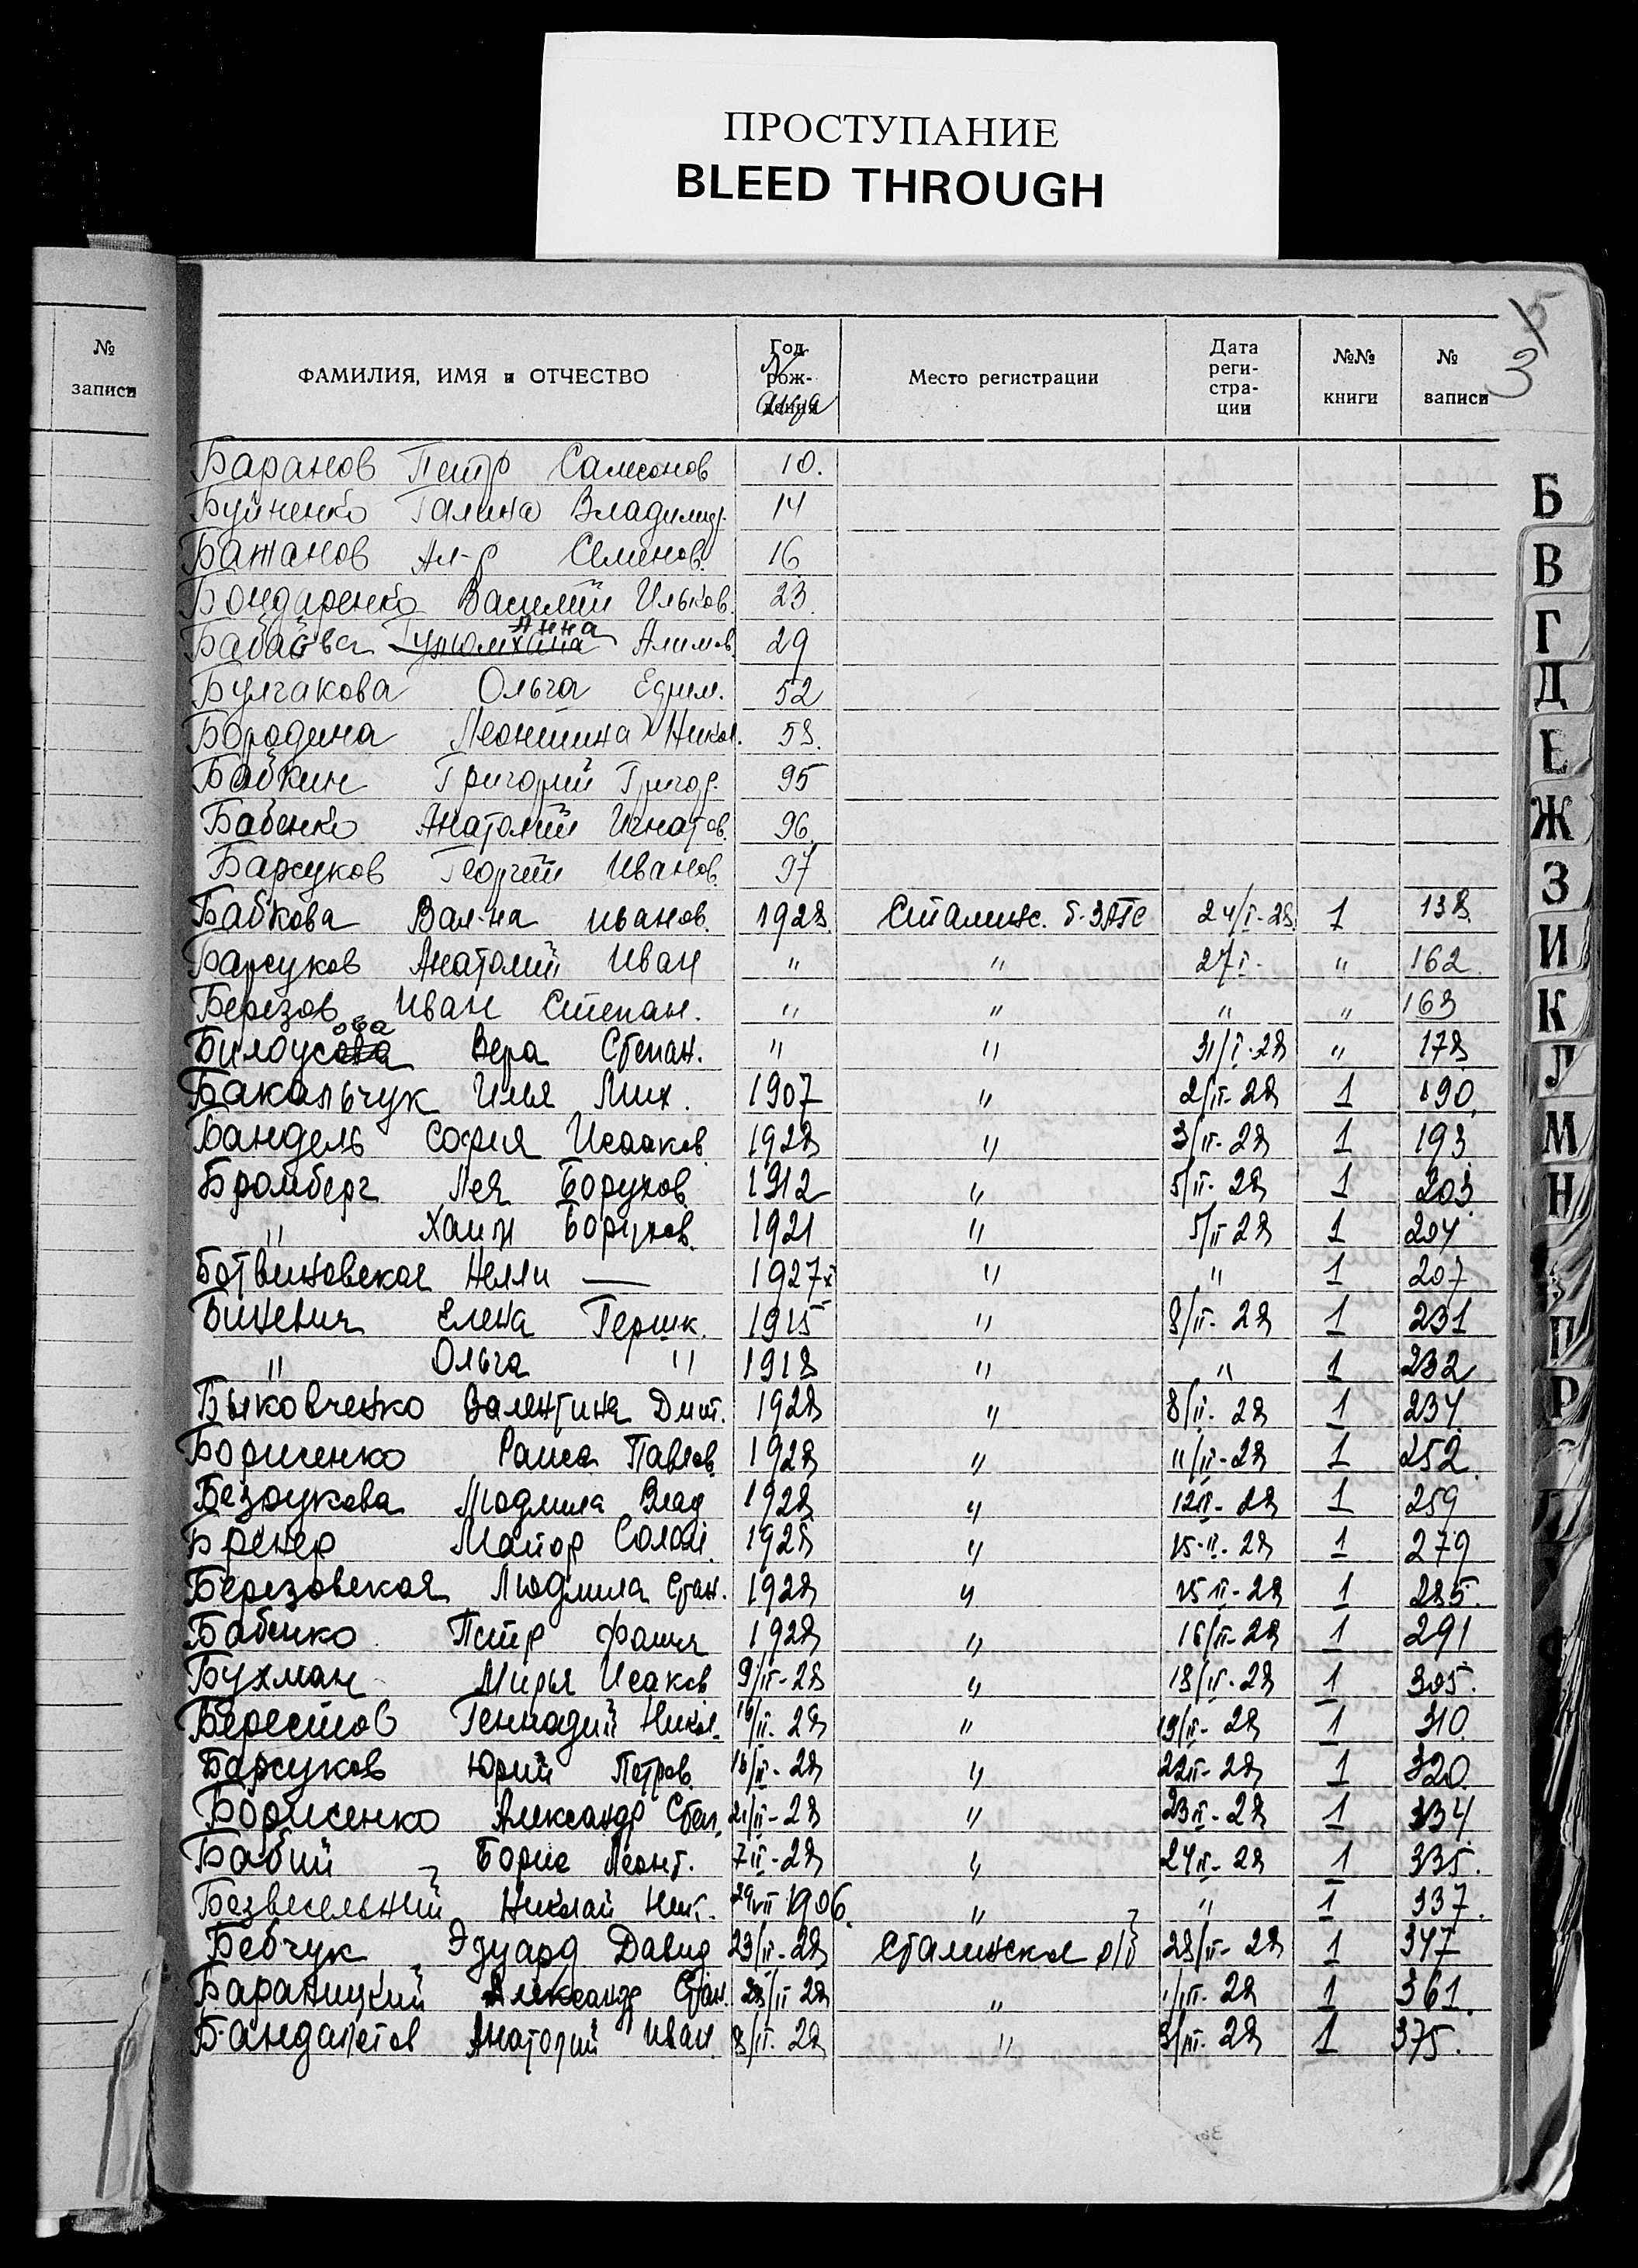 ПРОСТУПАНИЕ
BLEED THROUGH
№ записи
ФАМИЛИЯ, ИМЯ и ОТЧЕСТВО Год рож- дения Место регистрации Дата реги- стра- ции №№ книги № записи 3
Баранов Петр Самсонов 10.
Буйненко Галина Владимир. 14
Бажанов Ал-р Семенов. 16
Бондаренко Василий Ильков. 23.
Бабаева Анна Алимов. 29
Булгакова Ольга Ефим. 52
Бородина Леонтина Никол. 58.
Бабкин Григорий Григор. 95
Бабенко Анатолий Игнатов. 96.
Барсуков Георгий Иванов. 97
Бабкова Вал-на Иванов. 1928. Сталинс. б-ЗАГС 24/I-28. 1 138.
Барсуков Анатолий Иван " " 27 I- " 162
Березов Иван Степан. " " " " 163
Билоусова Вера Степан. " " 31/I-28 " 178
Бакальчук Илья Мих. 1907 " 2/II-28 1 190.
Бандель София Исааков. 1928 " 3/II-28 1 193.
Бромберг Лея Борухов. 1912 " 5/II-28 1 203.
" Хаим Борухов. 1921 " 5/II 28 1 204
Ботвиновская Нелли — 1927 " " 1 207
Биневич Елена Гершк. 1915 " 8/II-28 1 231
" Ольга " 1918 " " 1 232
Быковченко Валентина Дмит. 1928 " 8/II-28 1 234.
Борисенко Раиса Павлов. 1928 " 11/II-28 1 252.
Безрукова Людмила Влад 1928 " 12II-28 1 259
Бренер Майор Солом. 1928 " 15-II-28 1 279
Березовская Людмила Стан. 1928 " 15 II-28 1 285.
Бабенко Петр 1928 " 16/II-28 1 291
Бухман Мирья Исаков 9/II-28 " 18/II-28 1 305.
Берестов Геннадий Никол. 16/II-28 " 19/II-28 1 310.
Барсуков Юрий Петров. 16/II-28 " 22II-28 1 320.
Борисенко Александр Степ. 21/II-28 " 23II-28 1 334
Бабий Борис Леонт. 7II-28 " 24II-28 1 335.
Безвесельний Николай Ник. 29VII 1906. " " 1 337.
Бебчук Эдуард Давид 23/II-28 Сталинская р/б 28/II-28 1 347
Бараницкий Александр Стан. 28/II 28 " 1/III-28 1 361.
Бандалетов Анатолий Иван. 8/II-28 " 3/III-28 1 375.
Б
В
Г
Д
Е
Ж
З
И
К
Л
М
Н
П
Р